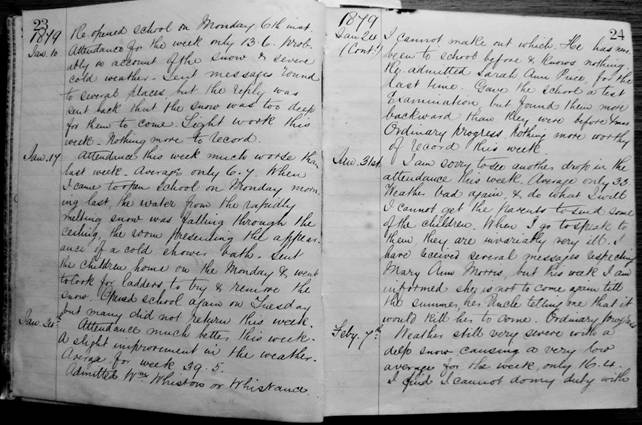 23
1879
Jan. 10
Re opened school on Monday 6th inst.
Attendance for the week only 13.6. Prob-
ably on account of the snow & severe
cold weather. Sent messages round
to several places but the reply was
sent back that the snow was too deep
for them to come. Light work this
week. Nothing more to record.
Jan. 17.
Attendance this week much worse than
last week. Average only 6.7. When
I came to open school on Monday morn-
ing last, the water from the rapidly
melting snow was falling through the
ceiling, the room presenting the appear-
ance of a cold shower bath. Sent
the children home on the Monday & went
to look for ladders, to try & remove the
snow. Opened school again on Tuesday
but many did not return this week.
Jan. 24th
Attendance much better this week.
A slight improvement in the weather.
Average for week 39.5.
Admitted Wm Whiston or Whistance
24
1879
Jan 24
(Cont.)
I cannot make out which. He has never
been to school before & knows nothing.
Re admitted Sarah Ann for the
last time. Gave the school a test
Examination, but found them more
backward than they were before Xmas
Ordinary progress nothing more worthy
of record this week.
Jan. 31st.
I am sorry to see another drop in the
attendance this week. Average only 33
Weather bad again, & do what I will
I cannot get the Parents to send some
of the children. When I go to speak to
them they are invariably very ill. I
have received several messages respecting
Mary Ann Morris, but this week I am
informed she is not to come again till
the summer, her Uncle telling me that it
would kill her to come. Ordinary progress
Feby. 7th
Weather still very severe with a
deep snow causing a very low
average for the week, only 16.4.
I find I cannot do my duty with